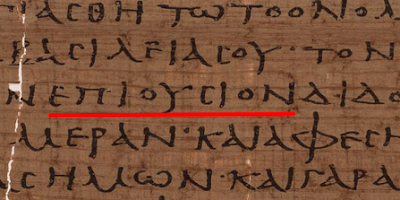 ΓΙΑϹΘΗΤΩΤΟΟΝΟΜ
ΒΑϹΙΛΕΙΑϹΟΥ·ΤΟΝ
Ν ΕΠΙΟΥϹΙΟΝΔΙΔΟ
ΜΕΡΑΝ·ΚΑΙΑΦΕϹΗ
ΑϹΗΜΩΝ·ΚΑΙΓΑΡΑ